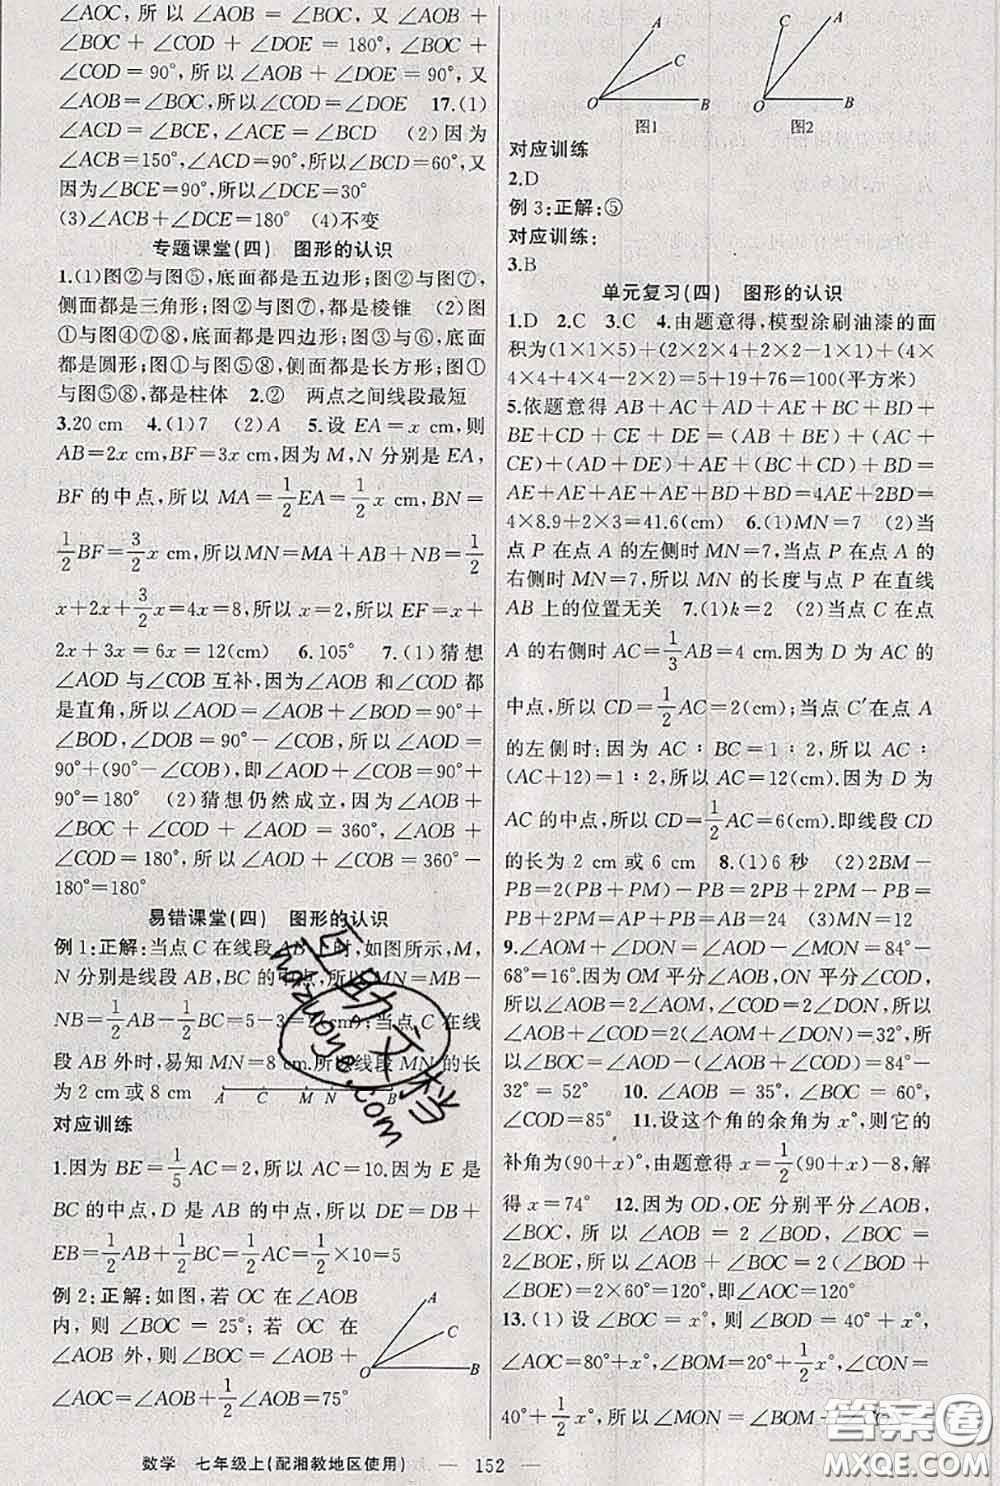 ∠AOC,所以∠AOB=∠BOC,又∠AOB+
∠BOC+∠COD+∠DOE=180°,∠BOC+
∠COD=90°,所以∠AOB+∠DOE=90°,又
∠AOB=∠BOC,所以∠COD=∠DOE 17.(1)
∠ACD=∠BCE,∠ACE=∠BCD (2)因为
∠ACB=150°,∠ACD=90°,所以∠BCD=60°,又
因为∠BCE=90°,所以∠DCE=30°
(3)∠ACB+∠DCE=180° (4)不变
专题课堂(四) 图形的认识
1.(1)图②与图⑤,底面都是五边形;图②与图⑦,
侧面都是三角形;图②与图⑦,都是棱锥 (2)图
①与图④⑦⑧,底面都是四边形;图③与图⑥,底
面都是圆形;图①与图⑤⑧,侧面都是长方形;图①
与图⑤⑧,都是柱体 2.② 两点之间线段最短
3.20 cm 4.(1)7 (2)A 5.设EA=x cm,则
AB=2x cm,BF=3x cm,因为M,N分别是EA,
BF的中点,所以MA=1/2EA=1/2x cm,BN=
1/2BF=3/2x cm,所以MN=MA+AB+NB=1/2
x+2x+3/2x=4x=8,所以x=2,所以EF=x+
2x+3x=6x=12(cm) 6.105° 7.(1)猜想
∠AOD与∠COB互补,因为∠AOB和∠COD都
是直角,所以∠AOD=∠AOB+∠BOD=90°+
∠BOD,∠DOB=90°-∠COB,所以∠AOD=
90°+(90°-∠COB),即∠AOD+∠COB=90°+
90°=180° (2)猜想仍然成立,因为∠AOB+
∠BOC+∠COD+∠AOD=360°,∠AOB=
∠COD=180°,所以∠AOD+∠COB=360°-
180°=180°
易错课堂(四) 图形的认识
例1:正解:当点C在线段AB上时,如图所示,M,
N分别是线段AB,BC的中点,所以MN=MB-
NB=1/2AB-1/2BC=5-3=2(cm);当点C在线
段AB外时,易知MN=8 cm.所以线段MN的长
为2 cm或8 cm
A C M N B
对应训练
1.因为BE=1/5AC=2,所以AC=10.因为E是
BC的中点,D是AB的中点,所以DE=DB+
EB=1/2AB+1/2BC=1/2AC=1/2×10=5
例2:正解:如图,若OC在∠AOB
内,则∠BOC=25°;若OC在
∠AOB外,则∠BOC=∠AOB+
∠AOC=∠AOB+1/2∠AOB=75°
A
C
O B
A
C
O B
图1
C A
O B
图2
对应训练
2.D
例3:正解:⑤
对应训练:
3.B
单元复习(四) 图形的认识
1.D 2.C 3.C 4.由题意得,模型涂刷油漆的面
积为(1×1×5)+(2×2×4+2×2-1×1)+(4×
4×4+4×4-2×2)=5+19+76=100(平方米)
5.依题意得AB+AC+AD+AE+BC+BD+
BE+CD+CE+DE=(AB+BE)+(AC+
CE)+(AD+DE)+AE+(BC+CD)+BD=
AE+AE+AE+AE+BD+BD=4AE+2BD=
4×8.9+2×3=41.6(cm) 6.(1)MN=7 (2)当
点P在点A的左侧时MN=7,当点P在点A的
右侧时MN=7,所以MN的长度与点P在直线
AB上的位置无关 7.(1)k=2 (2)当点C在点
A的右侧时AC=1/3AB=4 cm.因为D为AC的
中点,所以CD=1/2AC=2(cm);当点C′在点A
的左侧时:因为AC∶BC=1∶2,所以AC∶
(AC+12)=1∶2,所以AC=12(cm).因为D为
AC的中点,所以CD=1/2AC=6(cm).即线段CD
的长为2 cm或6 cm 8.(1)6秒 (2)2BM-
PB=2(PB+PM)-PB=2PB+2PM-PB=
PB+2PM=PB+AP=AB=24 (3)MN=12
9.∠AOM+∠DON=∠AOD-∠MON=84°-
68°=16°.因为OM平分∠AOB,ON平分∠COD,
所以∠AOB=2∠AOM,∠COD=2∠DON,所以
∠AOB+∠COD=2(∠AOM+∠DON)=32°,所
以∠BOC=∠AOD-(∠AOB+∠COD)=84°-
32°=52° 10.∠AOB=35°,∠BOC=60°,
∠COD=85° 11.设这个角的余角为x°,则它的
补角为(90+x)°,由题意得x=1/2(90+x)-8,解
得x=74° 12.因为OD,OE分别平分∠AOB,
∠BOC,所以∠AOB=2∠BOD,∠BOC=
2∠BOE,所以∠AOB+∠BOC=2(∠BOD+
∠BOE)=2×60°=120°,即∠AOC=120°
13.(1)设∠BOC=x°,则∠BOD=40°+x°,
∠AOC=80°+x°,∠BOM=20°+1/2x°,∠CON=
40°+1/2x°,所以∠MON=∠BOM+∠CON
数学 七年级上(配湘教地区使用) — 152 —
互助文档
hdzuoye.com
答案圈
MXQE.COM